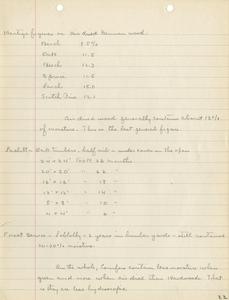 Hartig figures on air dried German wood:
Beech 9.5%
Oak 11.5
Beech 12.3
Spruce 11.5
Larch 15.0
Scotch Pine 12.1
Air dried wood generally contains about 12%
of moisture. This is the best general figure.
Oak timbers, half air - under cover in the open
24" x 24" took 26 months
20" x 20" " 22 "
16" x 16" " 18 "
12" x 12" " 14 "
8" x 8" " 10 "
4" x 4" " 6 "
Forest Service - Loblolly - 2 years in lumber yards - still contained
moisture.
On the whole, Conifers contain less moisture when
green and more when air dried than Hardwoods. That
is they are less hydroscopic.